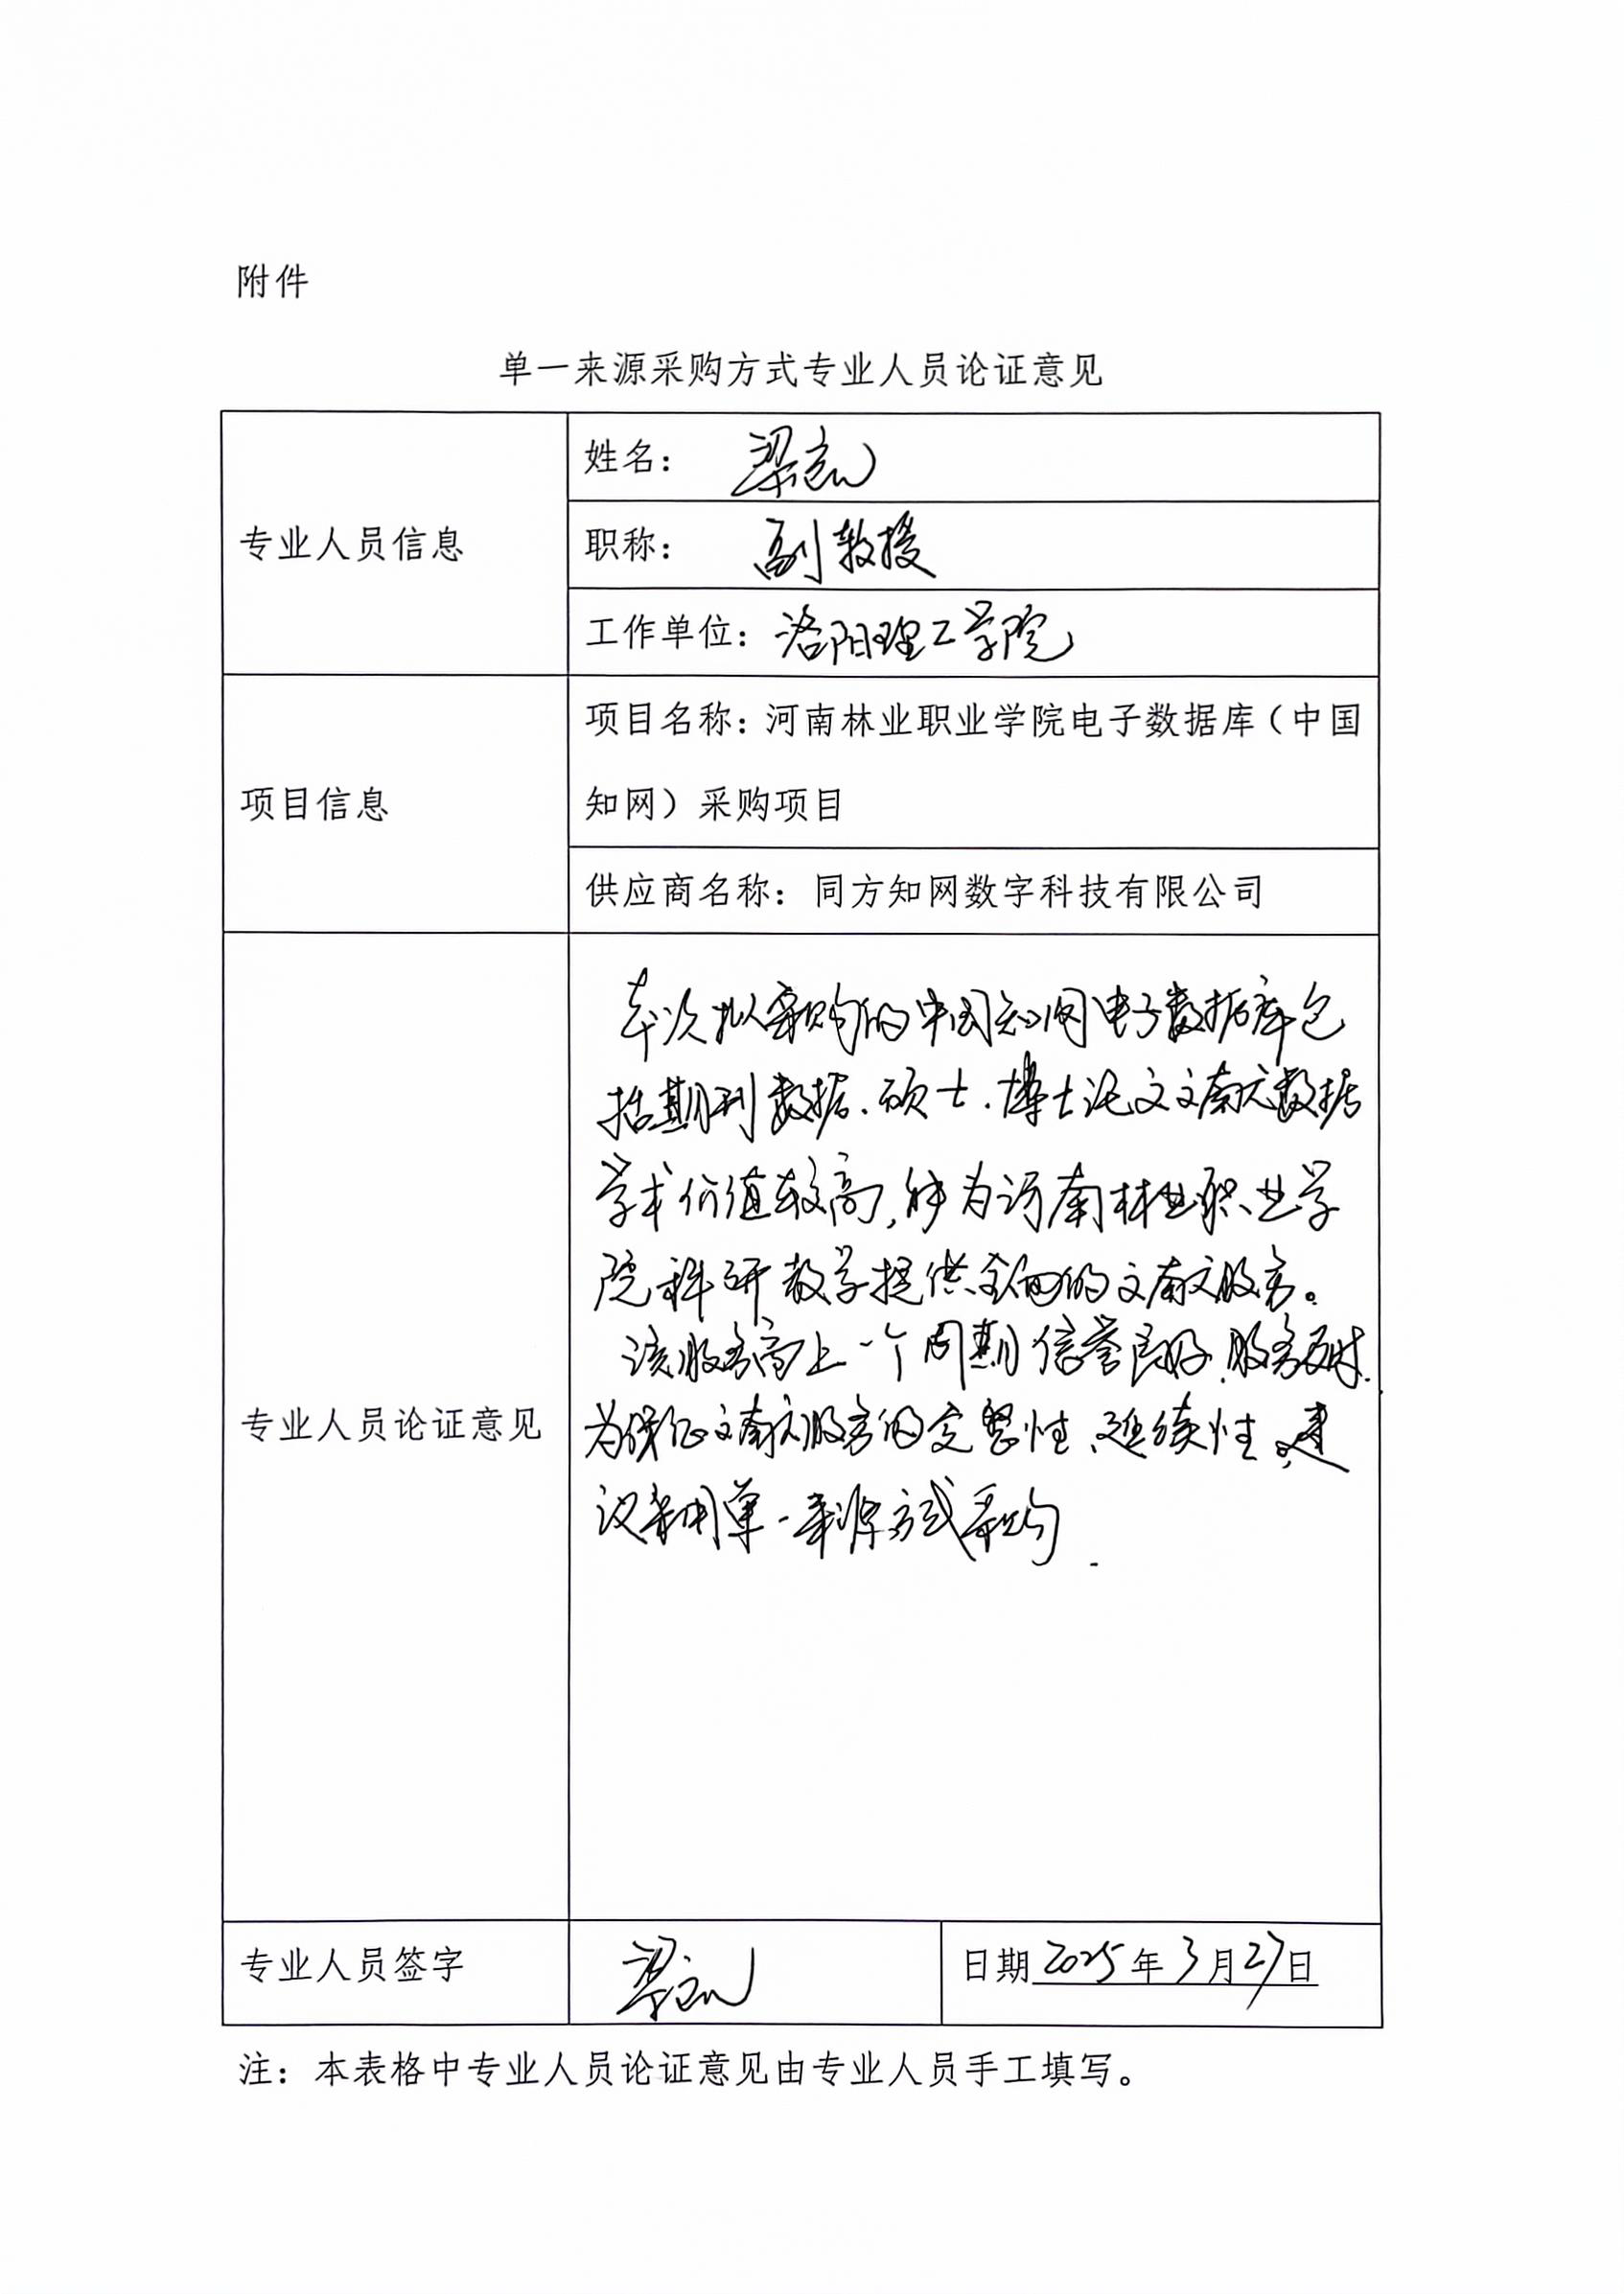 附件
单一来源采购方式专业人员论证意见
专业人员信息
姓名：梁
职称：副教授
工作单位：洛阳理工学院
项目信息
项目名称：河南林业职业学院电子数据库（中国
知网）采购项目
供应商名称：同方知网数字科技有限公司
专业人员论证意见
本次拟采购的中国知网电子数据库包
括期刊数据、硕士、博士论文文献数据
学术价值较高，能为河南林业职业学
院科研教学提供全面的文献服务。
该服务商上一个周期信誉良好，服务及时.
为保证文献服务的完整性、延续性，建
议采用单一来源方式采购.
专业人员签字
梁
日期2025年3月27日
注：本表格中专业人员论证意见由专业人员手工填写。